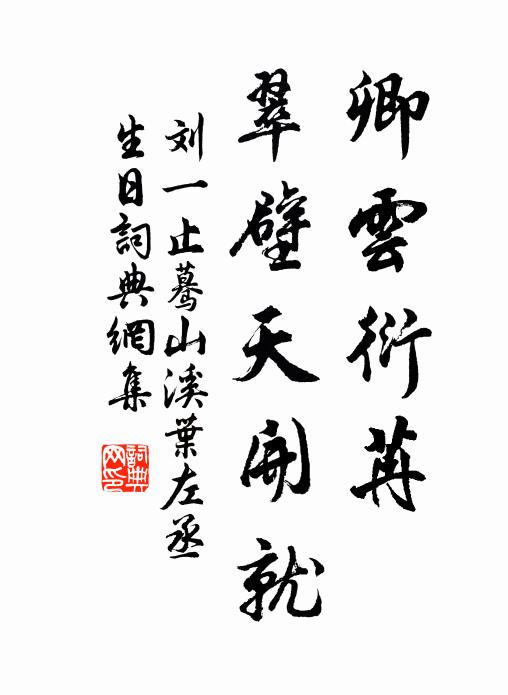 卿雲衍苒
翠壁天開就
刘一止驀山溪葉左丞
生日詞典網集
詞典网印